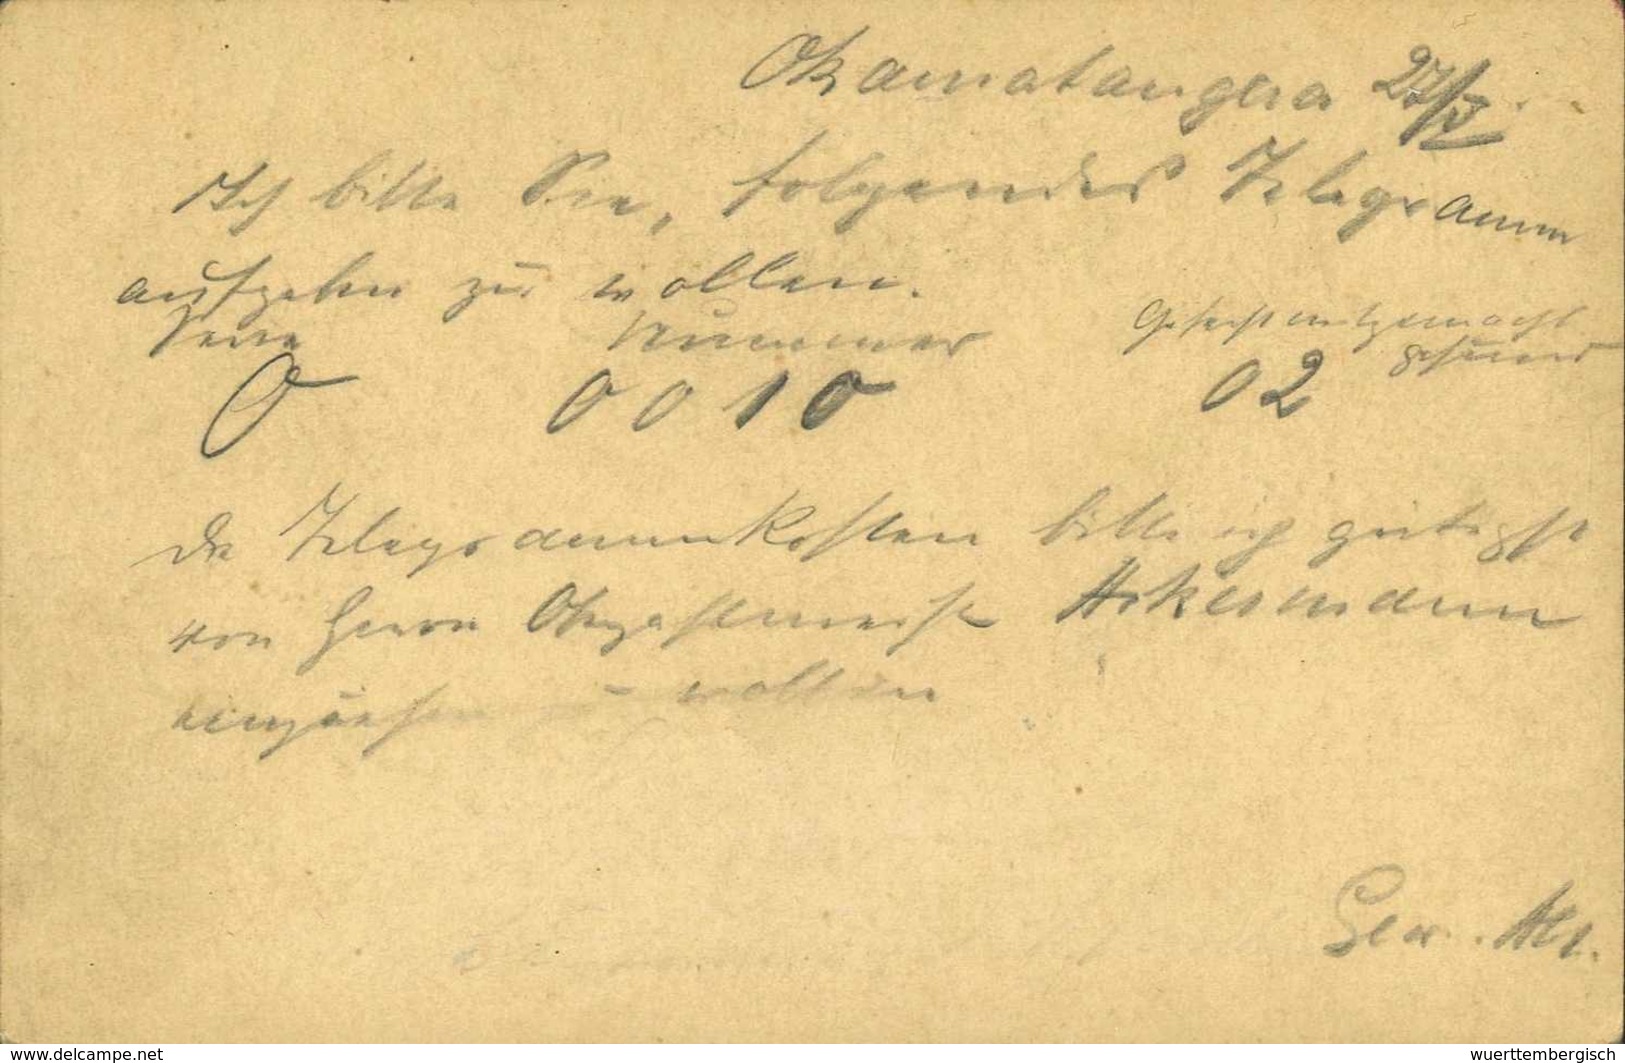 Okamatangara 27/X.
Ich bitte Sie, folgendes Telegramm
aufgeben zu wollen.
Serie Nummer Gefecht mitgemacht
gesund
0 0010 02
Die Telegrammkosten bitte ich gütigst
von Herrn Ackermann
einziehen zu wollen
www.delcampe.net
wuerttembergisch